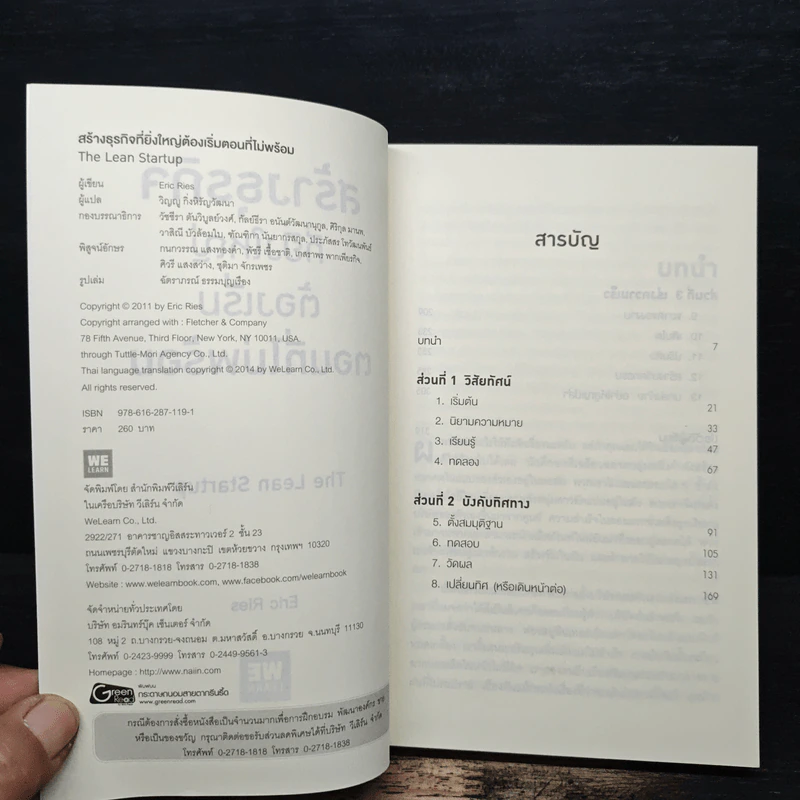 สร้างธุรกิจที่ยิ่งใหญ่ต้องเริ่มตอนที่ไม่พร้อม
The Lean Startup
ผู้เขียน Eric Ries
ผู้แปล วิญญู กิ่งหิรัญวัฒนา
กองบรรณาธิการ วัชชิรา ตันวิบูลย์วงศ์, กัลย์ธีรา อนันต์วัฒนานุกูล, ศิริกุล มานพ,
วาสินี บัวล้อมใบ, ทัณฑิกา นันยากรสกุล, ประภัสสร โทวัฒนพันธ์
พิสูจน์อักษร กนกวรรณ แสงทองคำ, พัชรี เชื้อชาติ, เกสราพร พากเพียรกิจ,
ศิวรี แสงสว่าง, ชุติมา จักรเพชร
รูปเล่ม ฉัตราภรณ์ ธรรมบุญเรือง
Copyright © 2011 by Eric Ries
Copyright arranged with : Fletcher & Company
78 Fifth Avenue, Third Floor, New York, NY 10011, USA
through Tuttle-Mori Agency Co., Ltd.
Thai language translation copyright © 2014 by WeLearn Co., Ltd.
All rights reserved.
ISBN 978-616-287-119-1
ราคา 260 บาท
WE
LEARN
จัดพิมพ์โดย สำนักพิมพ์วีเลิร์น
ในเครือบริษัท วีเลิร์น จำกัด
WeLearn Co., Ltd.
2922/271 อาคารชาญอิสสระทาวเวอร์ 2 ชั้น 23
ถนนเพชรบุรีตัดใหม่ แขวงบางกะปิ เขตห้วยขวาง กรุงเทพฯ 10320
โทรศัพท์ 0-2718-1818 โทรสาร 0-2718-1838
Website : www.welearnbook.com, www.facebook.com/welearnbook
จัดจำหน่ายทั่วประเทศโดย
บริษัท อมรินทร์บุ๊ค เซ็นเตอร์ จำกัด
108 หมู่ 2 ถ.บางกรวย-จงถนอม ต.มหาสวัสดิ์ อ.บางกรวย จ.นนทบุรี 11130
โทรศัพท์ 0-2423-9999 โทรสาร 0-2449-9561-3
Homepage : http://www.naiin.com
Green Read
พิมพ์บน
กระดาษถนอมสายตากรีนรี้ด
www.greenread.com
กรณีต้องการสั่งซื้อหนังสือเป็นจำนวนมากเพื่อการฝึกอบรม พัฒนาองค์กร ขาย
หรือเป็นของขวัญ กรุณาติดต่อขอรับส่วนลดพิเศษได้ที่บริษัท วีเลิร์น จำกัด
โทรศัพท์ 0-2718-1818 โทรสาร 0-2718-1838
สารบัญ
บทนำ 7
ส่วนที่ 1 วิสัยทัศน์
1. เริ่มต้น 21
2. นิยามความหมาย 33
3. เรียนรู้ 47
4. ทดลอง 67
ส่วนที่ 2 บังคับทิศทาง
5. ตั้งสมมุติฐาน 91
6. ทดสอบ 105
7. วัดผล 131
8. เปลี่ยนทิศ (หรือเดินหน้าต่อ) 169